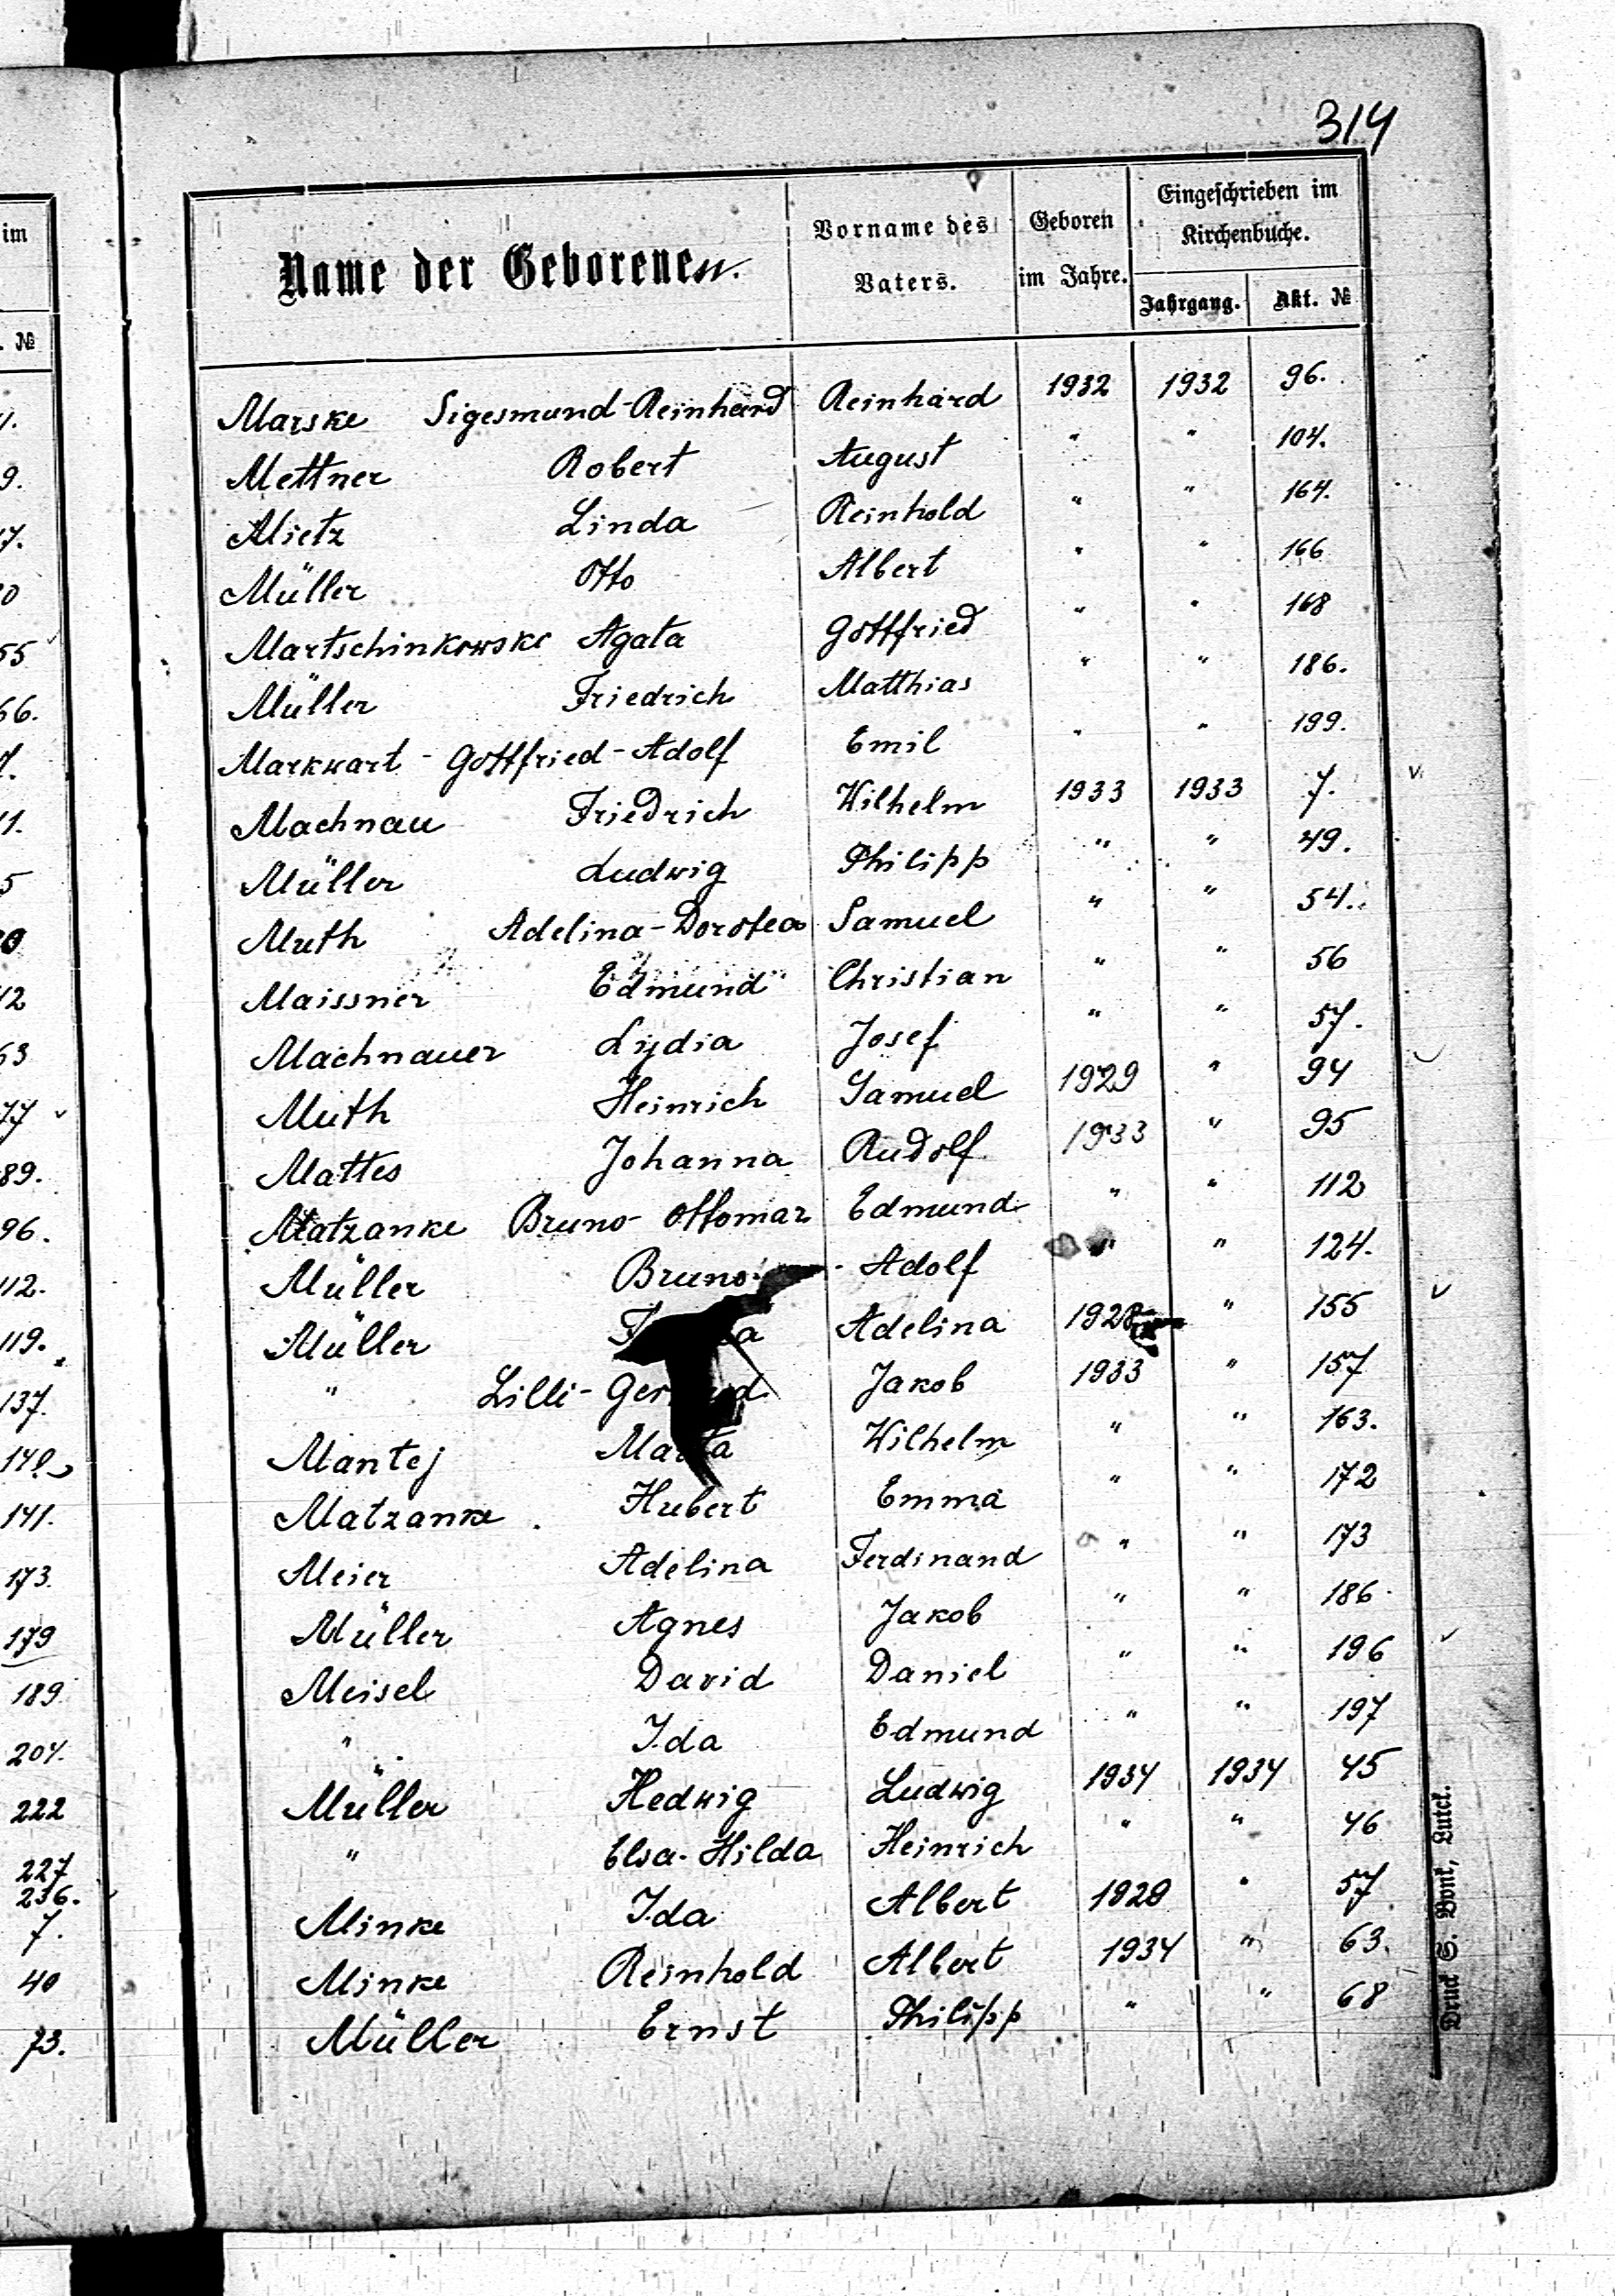 314
im
. №
Name der Geborenen.
Vorname des Vaters.
Geboren im Jahre.
Eingeschrieben im Kirchenbuche.
Jahrgang. Akt. №
Marske Sigesmund-Reinhard Reinhard 1932 1932 96.
Mettner Robert August " " 104.
Mietz Linda Reinhold " " 164.
Müller Otto Albert " " 166
Martschinkowski Agata Gottfried " " 168
Müller Friedrich Matthias " " 186.
Markwart - Gottfried-Adolf Emil " " 199.
Machnau Friedrich Wilhelm 1933 1933 7.
Müller Ludwig Philipp " " 49.
Muth Adelina-Dorotea Samuel " " 54.
Maissner Edmund Christian " " 56
Machnauer Lydia Josef " " 57.
Muth Heinrich Samuel 1929 " 94
Mattes Johanna Rudolf 1933 " 95
Matzanke Bruno-Ottomar Edmund " " 112
Müller Bruno Adolf " " 124.
Müller Adelina 1928 " 155
" Lilli- Jakob 1933 " 157
Mantej Marta Wilhelm " " 163.
Matzanke Hubert Emma " " 172
Meier Adelina Ferdinand " " 173
Müller Agnes Jakob " " 186.
Meisel David Daniel " " 196
" Ida Edmund " " 197
Müller Hedwig Ludwig 1934 1934 45
" Elsa-Hilda Heinrich " " 46
Minke Ida Albert 1928 " 57
Minke Reinhold Albert 1934 " 63.
Müller Ernst Philipp " " 68
Druck S. Bonk, Luck.
9.
7.
0
55
66.
7.
11.
5
12
63
77
89.
96.
112.
119.
137.
140
141.
173.
179
189
204.
222
227
236.
7.
40
73.